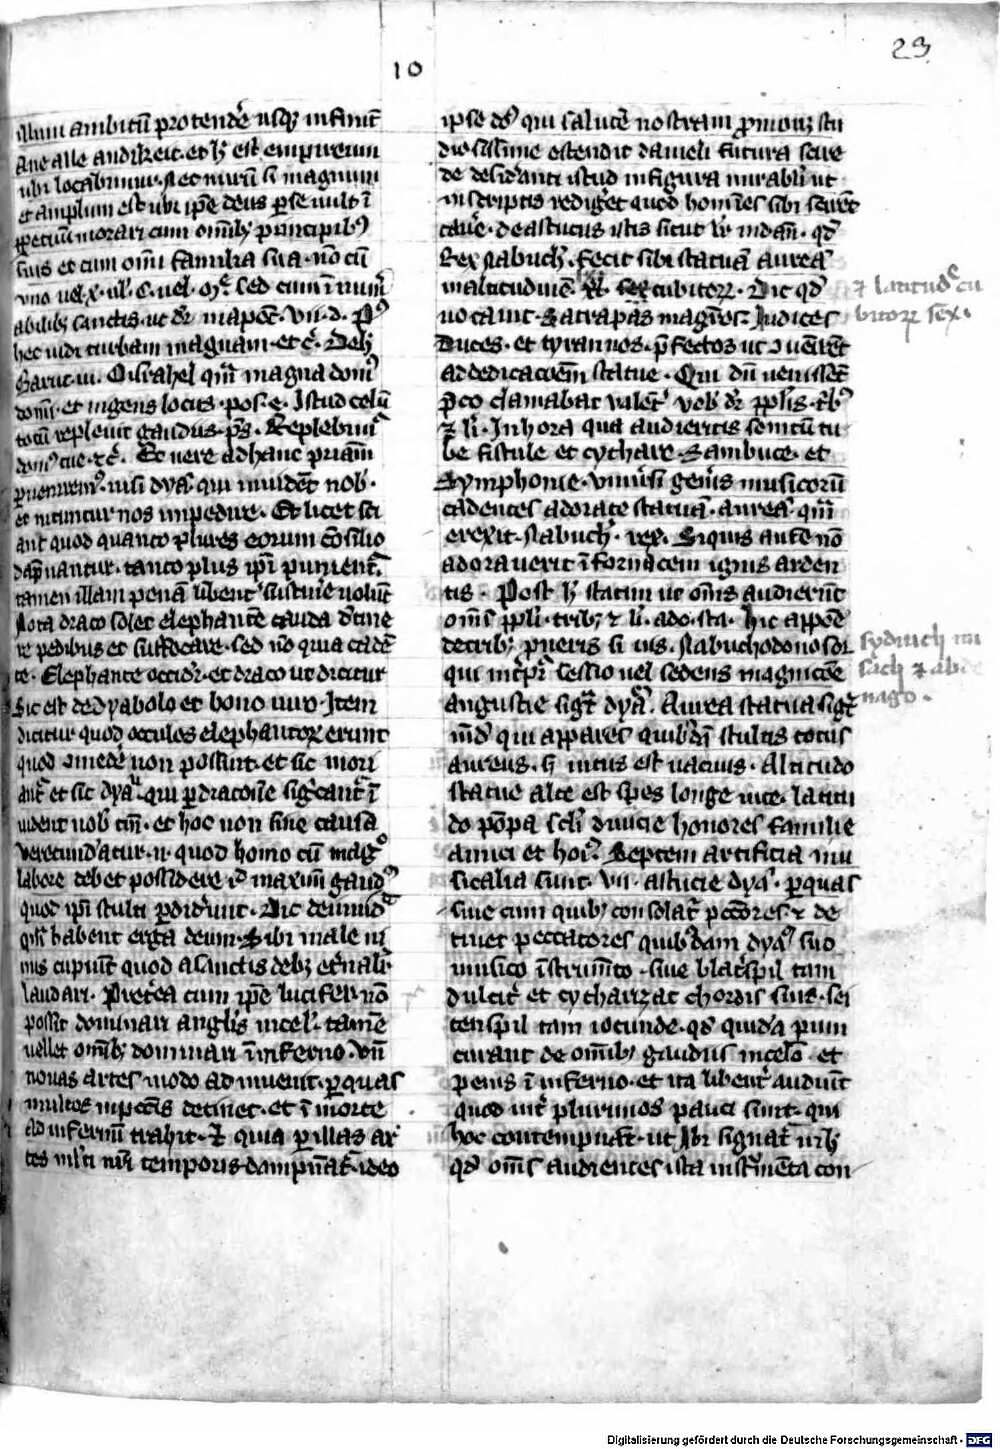 10
23
illum ambitū protendē usq; infinit
Ane alle andikeit et h̄ est empireum
ubi locabimur. nec mirū si magnum
et amplum est ubi ip̄e deus per se vult ī
ppetuū morari cum omib; principib;
suis et cum omni familia sua. nō cū
uno uel .x. ul .c. uel .mͥ. sed cum īnum
abilib; sanctis. ut dr̄ in apoc̄. vii. d. Pꝰ
hec uidi turbam magnam. et c̄.
Baruc. iii. O israhel qm̄ magna domꝰ
dom̄. et ingens locus. pos. e. Istud celū
totū repleuit gaudiis. ps̄. Replebimͥ
domꝰ tue. ⁊c̄. Et uere ad hanc p̄am̄
puenirem̄. nisi dya. qui inuidēt nob̄.
et nituntur nos impedire. Et licet sci
ant quod quanto plures eorum cōsilio
dāpnantur. tanto plus ip̄i punient̄.
tamen illam penā libent̄ sustinē uolūt
Nota draco solet elephantē cauda
re pedibus et suffocare. sed nō qua cadē
te. Elephante occidr̄. et draco ut dicitur
Sic est de dyabolo et bono uiro. Item
dicitur quod oculos elephantoꝝ erunt
quod ꝯmedē non possunt. et sic mori
ant̄ et sic dya. qui p draconē sigcant̄ ī
uident nob̄ et hoc non sine causa
verecundatur. n. quod homo cū mag̊
labore debet possidere id maximū gaudꝰ
quod ip̄i stulti pdiderunt. Dic
qm̄ habent erga deum. Sibi male ni
mis cupiūt quod a sanctis deb; et̄nalr̄
laudari. Pret̄ea cum ip̄e lucifer nō
possit dominari anglis in cel. tamē
uellet omib; dominari ī inferno. vn̄
nouas artes modo ad inuenit. p quas
multos in pctis detinet. et ī morte
ad infernū trahit. Et quia p illas ar
tes mlti nr̄i temporis dampnāt̄. ideo
ipse dꝰ qui salutē nostram ꝓmouꝫ stu
diosissime ostendit danieli futura scire
de desid̄anti istud in figura mirabl̄i ut
in scriptis redigēt quod homīes sibi scirent
cauē. de astuciis istis sicut lr̄ in dan̄. qd̄
Rex nabuch̄. fecit sibi statuā aureā
in altitudinē xl. sex cubitoꝝ. Dic qd̄
uocauit. Satrapas magr̄os. Judices
Duces. et tyrannos. p̄fectos ut ꝯuenirēt
ad dedicacōem statue. Qui dū uenissēt
p̄co clamabat valent̄ vob̄ dr̄ pplis. tbꝰ
⁊ li. In hora qua audieritis sonitū tu
be fistule et cythare. Sambuce. et
Symphonie. vniuersi gen̄is musicorū
cadentes adorate statuā. aureā. quā
erexit. nabuch̄. rex. Siquis autē nō
adorauerit ī fornacem ignis arden
tis. Post h̄ statim ut om̄s audierūt
om̄s ppli. trib; ⁊ li. ado. sta. hic appōe
de trib; pueris si uis. Nabuchodonosor
qui int̄pr̄ sessio uel sedens in agnicōe
angustie sigt̄ dyā. Aurea statua sigt̄
mūd̄ qui appares quib'dā stultis totus
aureus. s̄ intus est uacuus. Altitudo
statue alte est spes longe uite. latitu
do pōpa scli diuicie honores familie
amici et hoīꝰ. Septem artificia mu
sicalia sunt. vii. astucie dya. p quas
siue cum quib; consolat̄ pctōres ⁊ de
tinet peccatores quib'dam dyaꝰ suo
musico īstrumto. siue blat̄spil tam
dulcit̄ et cytharizat chordis suis. sei
tenspil tam iocunde. qd̄ quid'a parum
curant de omib; gaudiis in celo. et
penis ī inferno. et ita libent̄ audiūt
quod int̄ plurimos pauci sunt. qui
hoc contempnāt. ut ibi signat̄ urb;
qd̄ om̄s audientes ista instrumēta con
⁊ latitudīe cu
bitoꝝ sex.
sydrach mi
sach ⁊ abde
nago.
Digitalisierung gefördert durch die Deutsche Forschungsgemeinschaft - DFG